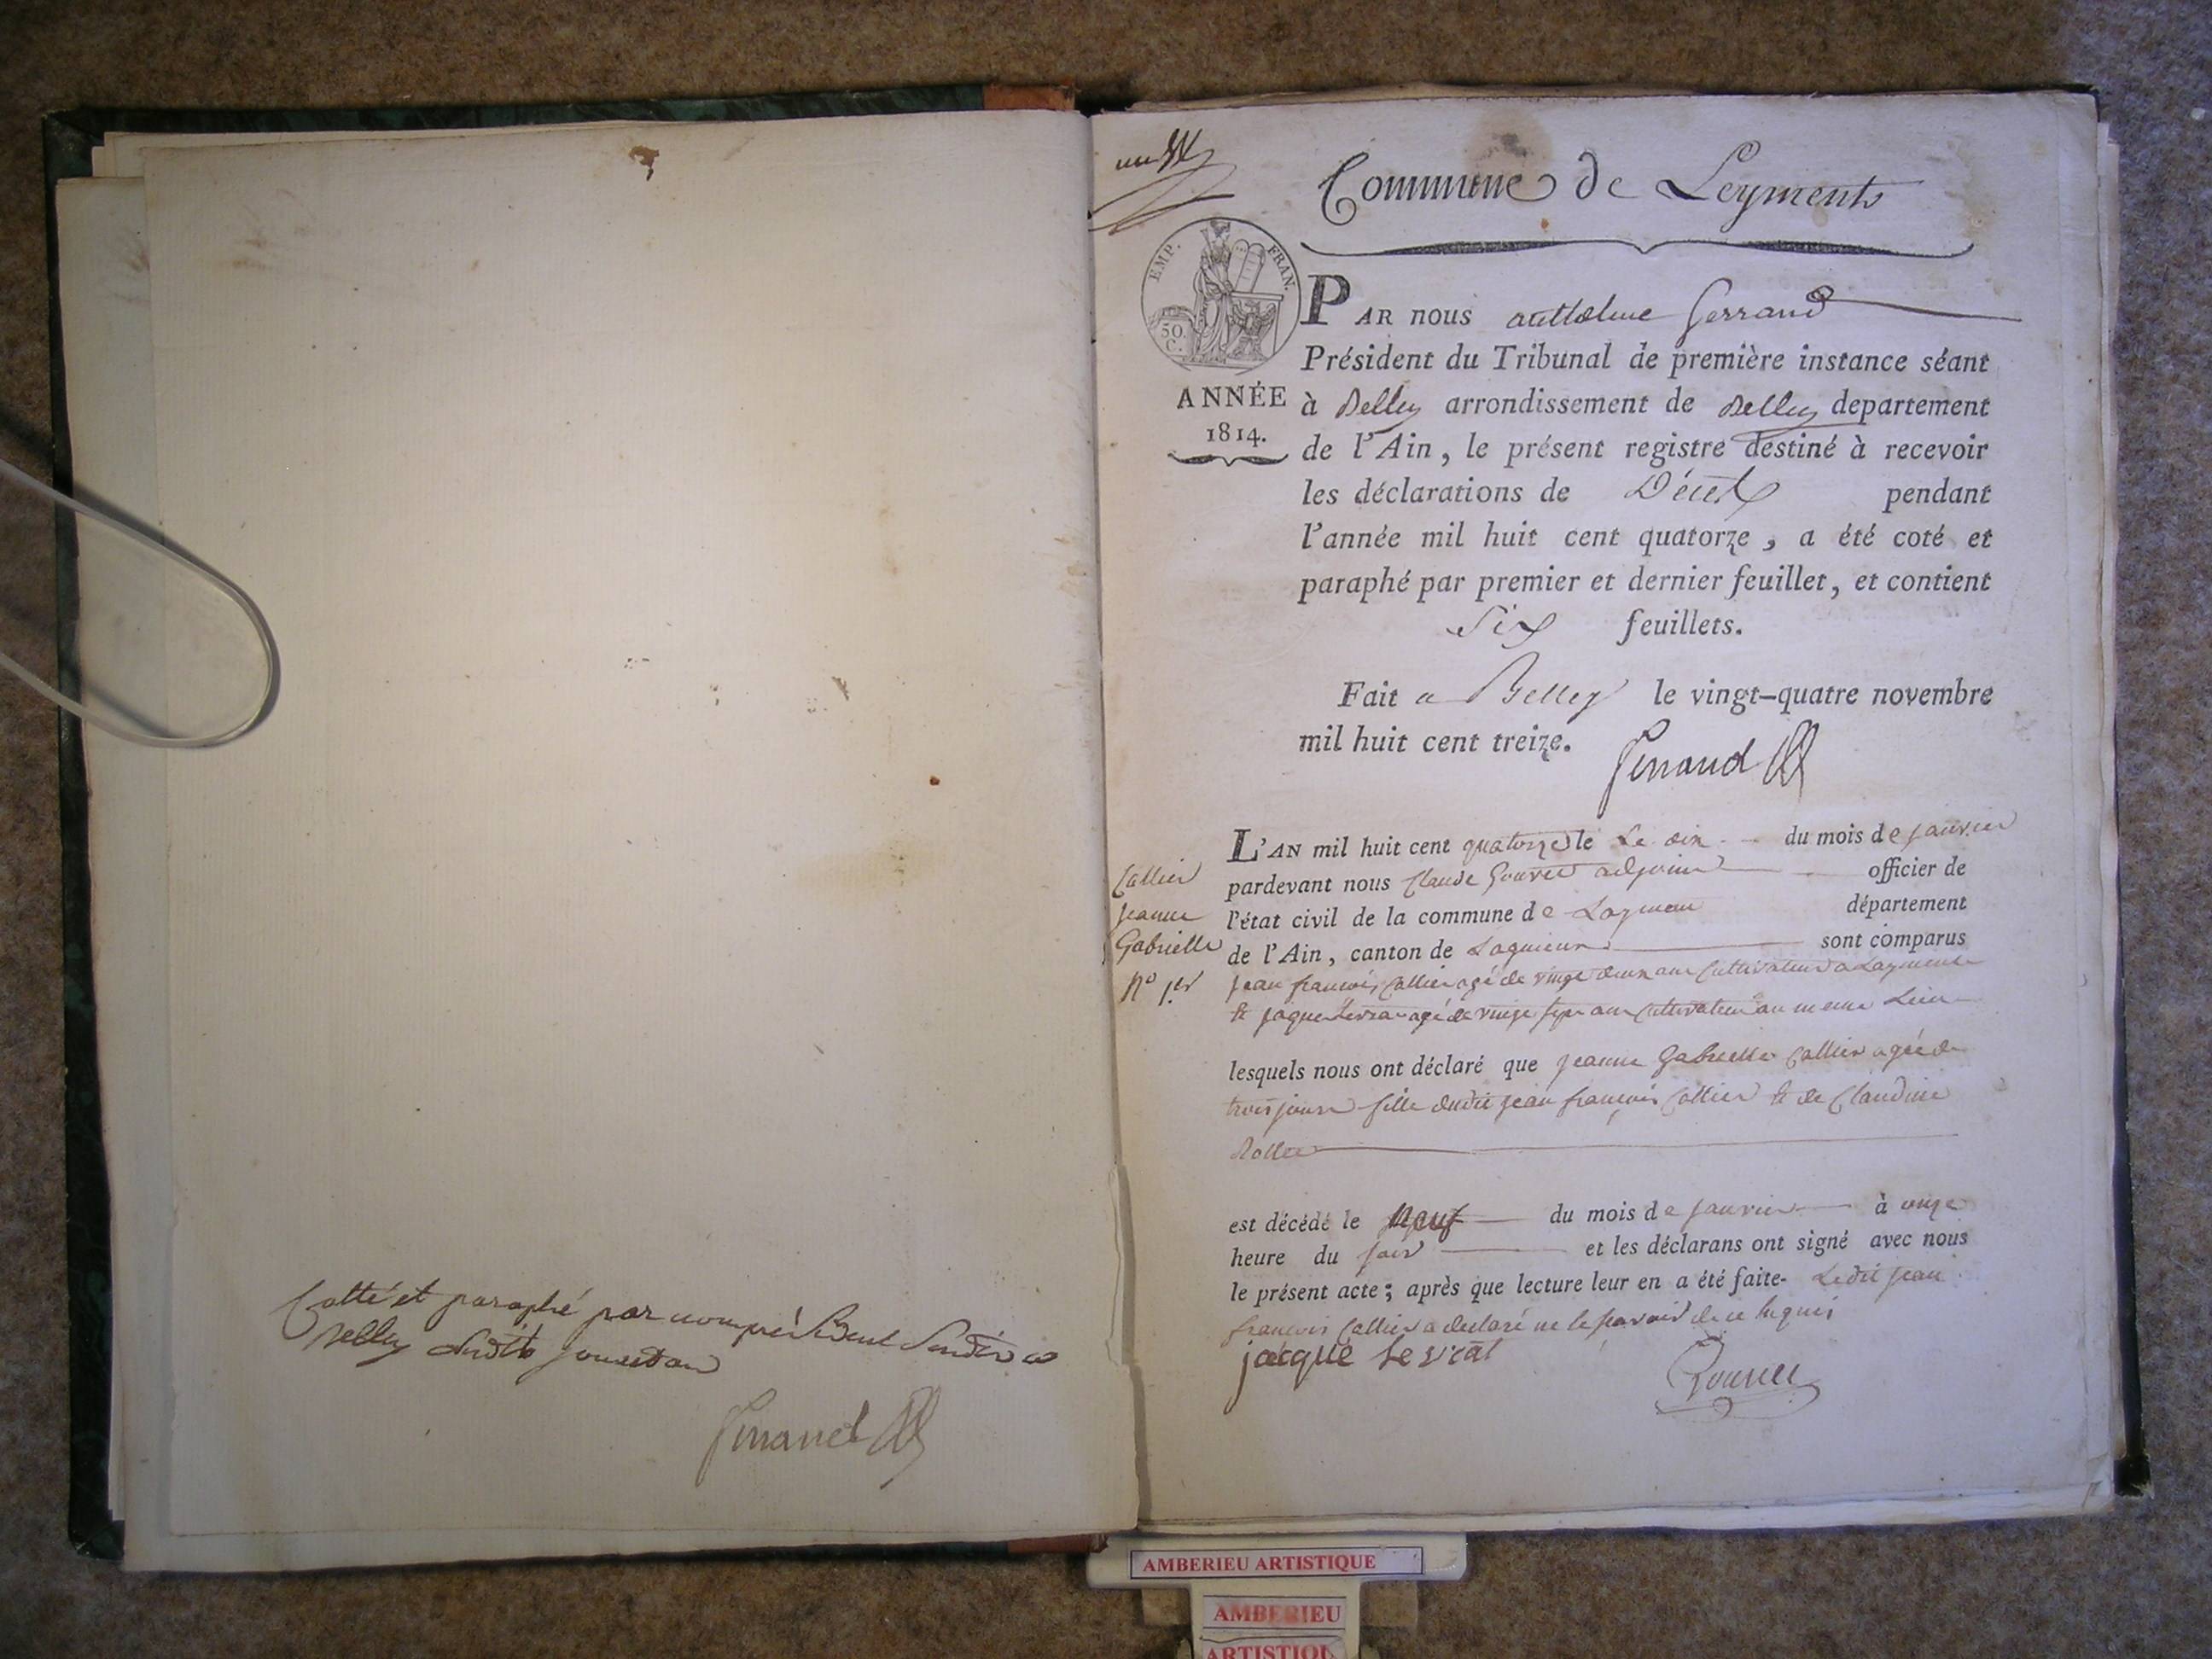 Cotté et paraphé par
Belley susdits jour et an
Ferrand
Commune de Leyments
EMP. FRAN.
50.
C.
ANNÉE
1814.
PAR nous anthelme Ferrand
Président du Tribunal de première instance séant
à Belley arrondissement de Belley departement
de l'Ain, le présent registre destiné à recevoir
les déclarations de Décès pendant
l'année mil huit cent quatorze, a été coté et
paraphé par premier et dernier feuillet, et contient
Six feuillets.
Fait a Belley le vingt-quatre novembre
mil huit cent treize.
Ferrand
Collier
Jeanne
Gabrielle
No 1er
L'AN mil huit cent quatorze le Le dix du mois de janvier
pardevant nous Claude adjoint officier de
l'état civil de la commune de département
de l'Ain, canton de Lagnieux sont comparus
Jean françois Collier agé de vingt deux ans Cultivateur a Layment
& jaque agé de vingt sept ans Cultivateur au meme Lieu
lesquels nous ont déclaré que jeanne Gabrielle Collier agée de
trois jours fille dudit jean françois Collier & de Claudine
est décédé le Neuf du mois de janvier à onze
heure du soir et les déclarans ont signé avec nous
le présent acte; après que lecture leur en a été faite- Ledit jean
françois Collier a declaré ne le savoir de ce requis
jacque
AMBERIEU ARTISTIQUE
AMBERIEU
ARTISTIQU